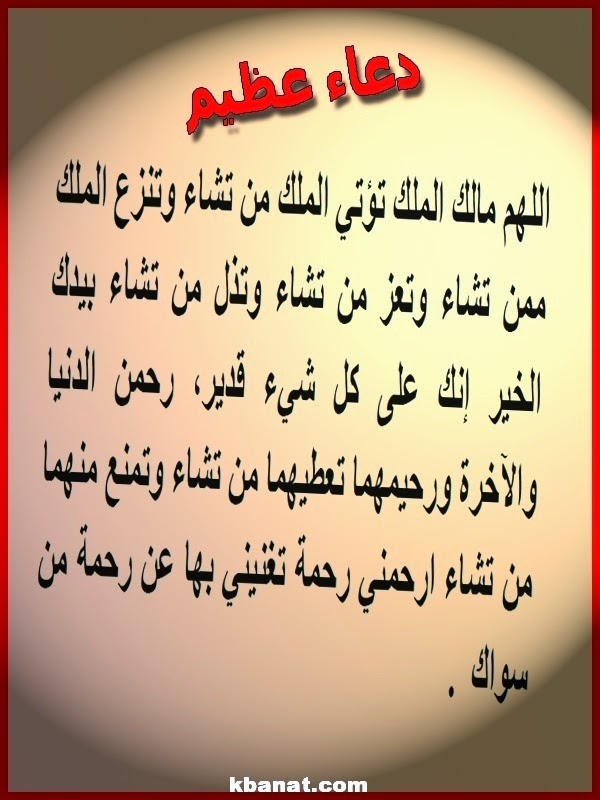 دعاء عظيم
اللهم مالك الملك تؤتي الملك من تشاء وتنزع الملك
ممن تشاء وتعز من تشاء وتذل من تشاء بيدك
الخير إنك على كل شيء قدير، رحمن الدنيا
والآخرة ورحيمهما تعطيهما من تشاء وتمنع منهما
من تشاء ارحمني رحمة تغنيني بها عن رحمة من
سواك .
kbanat.com